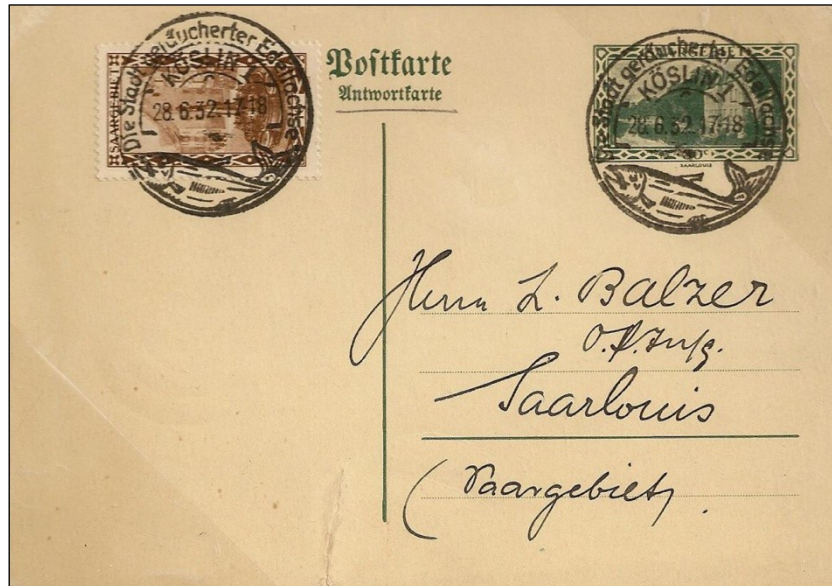 Die Stadt geräucherter Edellachse
KÖSLIN 1
28.6.32.17-18
SAARGEBIET
Postkarte
Antwortkarte
Die Stadt geräucherter Edellachse
KÖSLIN 1
28.6.32.17-18
SAARLOUIS
Herrn L. Balzer
Saarlouis
(Saargebiet)